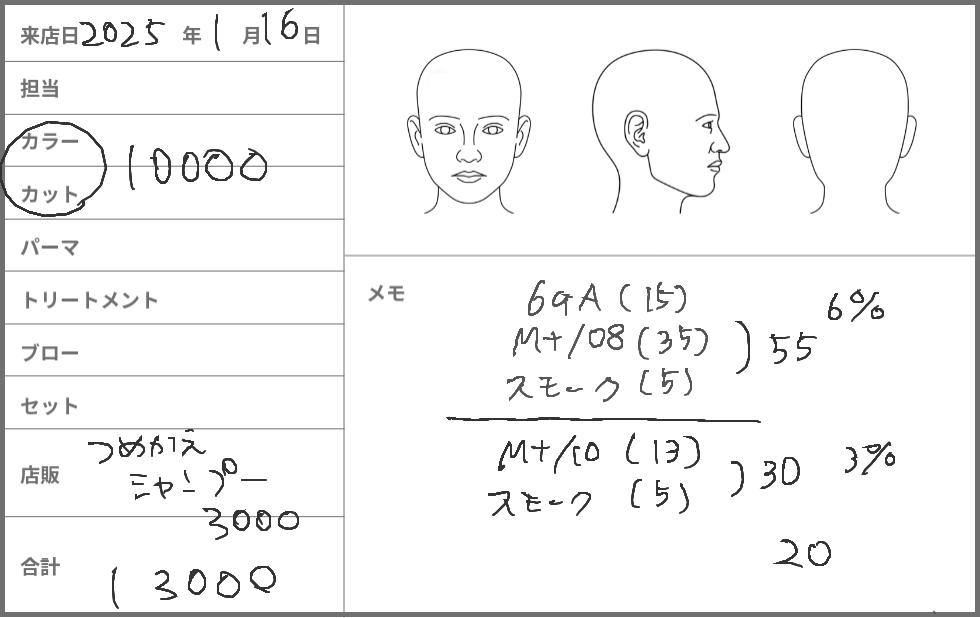 来店日2025 年 1 月16日
担当
カラー
カット
10000
パーマ
トリートメント
ブロー
セット
店販
つめかえ
シャンプー
3000
合計
13000
メモ
6GA (15)
M+/08 (35)
スモーク (5)
) 55
6%
M+/10 (13)
スモーク (5)
) 30
3%
20